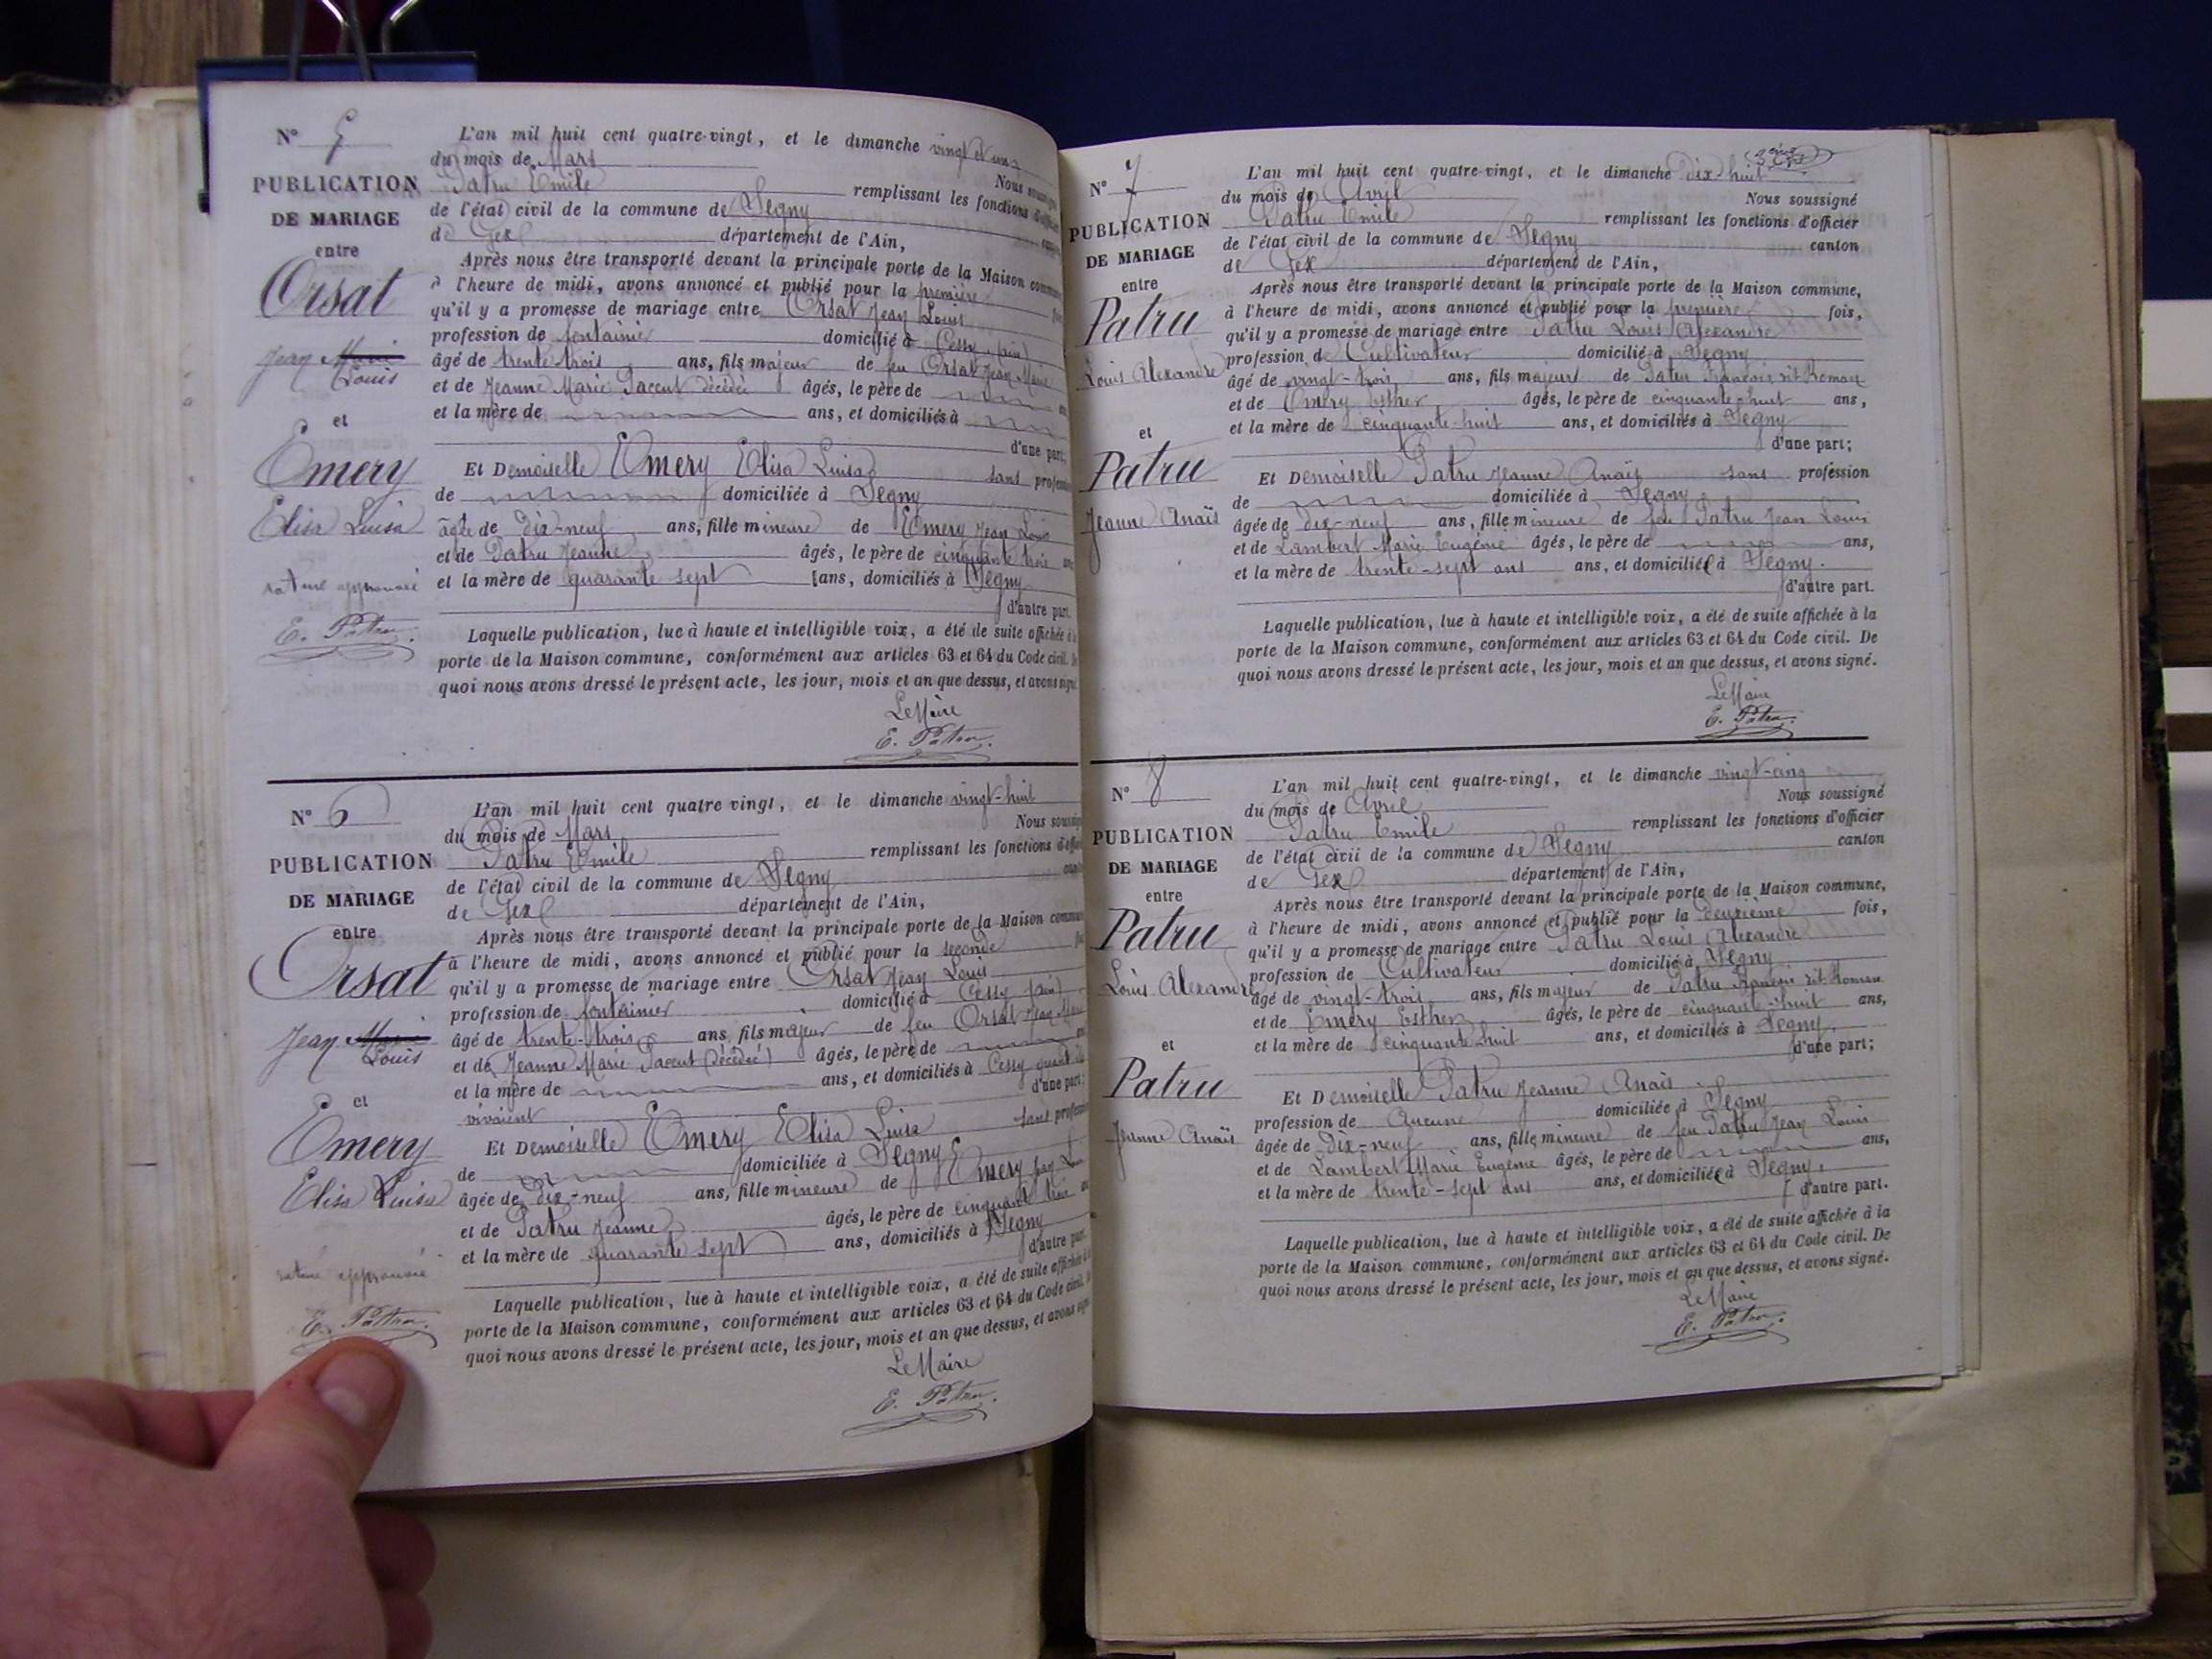 N° 5
PUBLICATION
DE MARIAGE
entre
Orsat
Jean Marie
Louis
et
Emery
Elisa Luisa
rature approuvée
E. Patru
L'an mil huit cent quatre-vingt, et le dimanche vingt et un
du mois de Mars Nous
Patru Emile remplissant les fonctions
de l'état civil de la commune de Segny
de Gex département de l'Ain,
Après nous être transporté devant la principale porte de la Maison
à l'heure de midi, avons annoncé et publié pour la première
qu'il y a promesse de mariage entre Orsat Jean Louis
profession de fontainier domicilié à Cessy (Ain)
âgé de trente trois ans, fils majeur de feu Orsat Jean Marie
et de Jeanne Marie Pacent décédée âgés, le père de
et la mère de ans, et domiciliés à
d'une part;
Et Demoiselle Emery Elisa Luisa sans
de domiciliée à Segny
âgée de dix-neuf ans, fille mineure de Emery Jean Louis
et de Patru Jeanne âgés, le père de cinquante trois
et la mère de quarante sept ans, domiciliés à Segny
d'autre part.
Laquelle publication, lue à haute et intelligible voix, a été de suite affichée
porte de la Maison commune, conformément aux articles 63 et 64 du Code civil.
quoi nous avons dressé le présent acte, les jour, mois et an que dessus, et avons
Le Maire
E. Patru
N° 6
PUBLICATION
DE MARIAGE
entre
Orsat
Jean Marie
Louis
et
Emery
Elisa Luisa
rature approuvée
E. Patru
L'an mil huit cent quatre vingt, et le dimanche vingt-huit
du mois de Mars Nous
Patru Emile remplissant les fonctions
de l'état civil de la commune de Segny
de Gex département de l'Ain,
Après nous être transporté devant la principale porte de la Maison
à l'heure de midi, avons annoncé et publié pour la seconde
qu'il y a promesse de mariage entre Orsat Jean Louis
profession de fontainier domicilié à Cessy (Ain)
âgé de trente-trois ans, fils majeur de feu Orsat Jean Marie
et de Jeanne Marie Pacent (décédée) âgés, le père de
et la mère de ans, et domiciliés à Cessy quand ils
vivaient d'une part;
Et Demoiselle Emery Elisa Luisa sans
de domiciliée à Segny
âgée de dix-neuf ans, fille mineure de Emery Jean Louis
et de Patru Jeanne âgés, le père de cinquante trois
et la mère de quarante sept ans, domiciliés à Segny
d'autre part.
Laquelle publication, lue à haute et intelligible voix, a été de suite affichée
porte de la Maison commune, conformément aux articles 63 et 64 du Code civil.
quoi nous avons dressé le présent acte, les jour, mois et an que dessus, et avons
Le Maire
E. Patru
N° 7
PUBLICATION
DE MARIAGE
entre
Patru
Louis Alexandre
et
Patru
Jeanne Anaïs
L'an mil huit cent quatre-vingt, et le dimanche dix-huit
du mois de Avril Nous soussigné
Patru Emile remplissant les fonctions d'officier
de l'état civil de la commune de Segny canton
de Gex département de l'Ain,
Après nous être transporté devant la principale porte de la Maison commune,
à l'heure de midi, avons annoncé et publié pour la première fois,
qu'il y a promesse de mariage entre Patru Louis Alexandre
profession de Cultivateur domicilié à Segny
âgé de vingt-trois ans, fils majeur de Patru François dit Roman
et de Emery Esther âgés, le père de cinquante-huit ans,
et la mère de cinquante-huit ans, et domiciliés à Segny
d'une part;
Et Demoiselle Patru Jeanne Anaïs sans profession
de domiciliée à Segny
âgée de dix-neuf ans, fille mineure de feu Patru Jean Louis
et de Lambert Marie Eugénie âgés, le père de ans,
et la mère de trente-sept ans ans, et domiciliée à Segny.
d'autre part.
Laquelle publication, lue à haute et intelligible voix, a été de suite affichée à la
porte de la Maison commune, conformément aux articles 63 et 64 du Code civil. De
quoi nous avons dressé le présent acte, les jour, mois et an que dessus, et avons signé.
Le Maire
E. Patru
N° 8
PUBLICATION
DE MARIAGE
entre
Patru
Louis Alexandre
et
Patru
Jeanne Anaïs
L'an mil huit cent quatre-vingt, et le dimanche vingt-cinq
du mois de Avril Nous soussigné
Patru Emile remplissant les fonctions d'officier
de l'état civil de la commune de Segny canton
de Gex département de l'Ain,
Après nous être transporté devant la principale porte de la Maison commune,
à l'heure de midi, avons annoncé et publié pour la deuxième fois,
qu'il y a promesse de mariage entre Patru Louis Alexandre
profession de Cultivateur domicilié à Segny
âgé de vingt-trois ans, fils majeur de Patru François dit Roman
et de Emery Esther âgés, le père de cinquante-huit ans,
et la mère de cinquante huit ans, et domiciliés à Segny
d'une part;
Et Demoiselle Patru Jeanne Anaïs
profession de Aucune domiciliée à Segny
âgée de Dix-neuf ans, fille mineure de feu Patru Jean Louis
et de Lambert Marie Eugénie âgés, le père de ans,
et la mère de trente-sept ans ans, et domiciliée à Segny.
d'autre part.
Laquelle publication, lue à haute et intelligible voix, a été de suite affichée à la
porte de la Maison commune, conformément aux articles 63 et 64 du Code civil. De
quoi nous avons dressé le présent acte, les jour, mois et an que dessus, et avons signé.
Le Maire
E. Patru